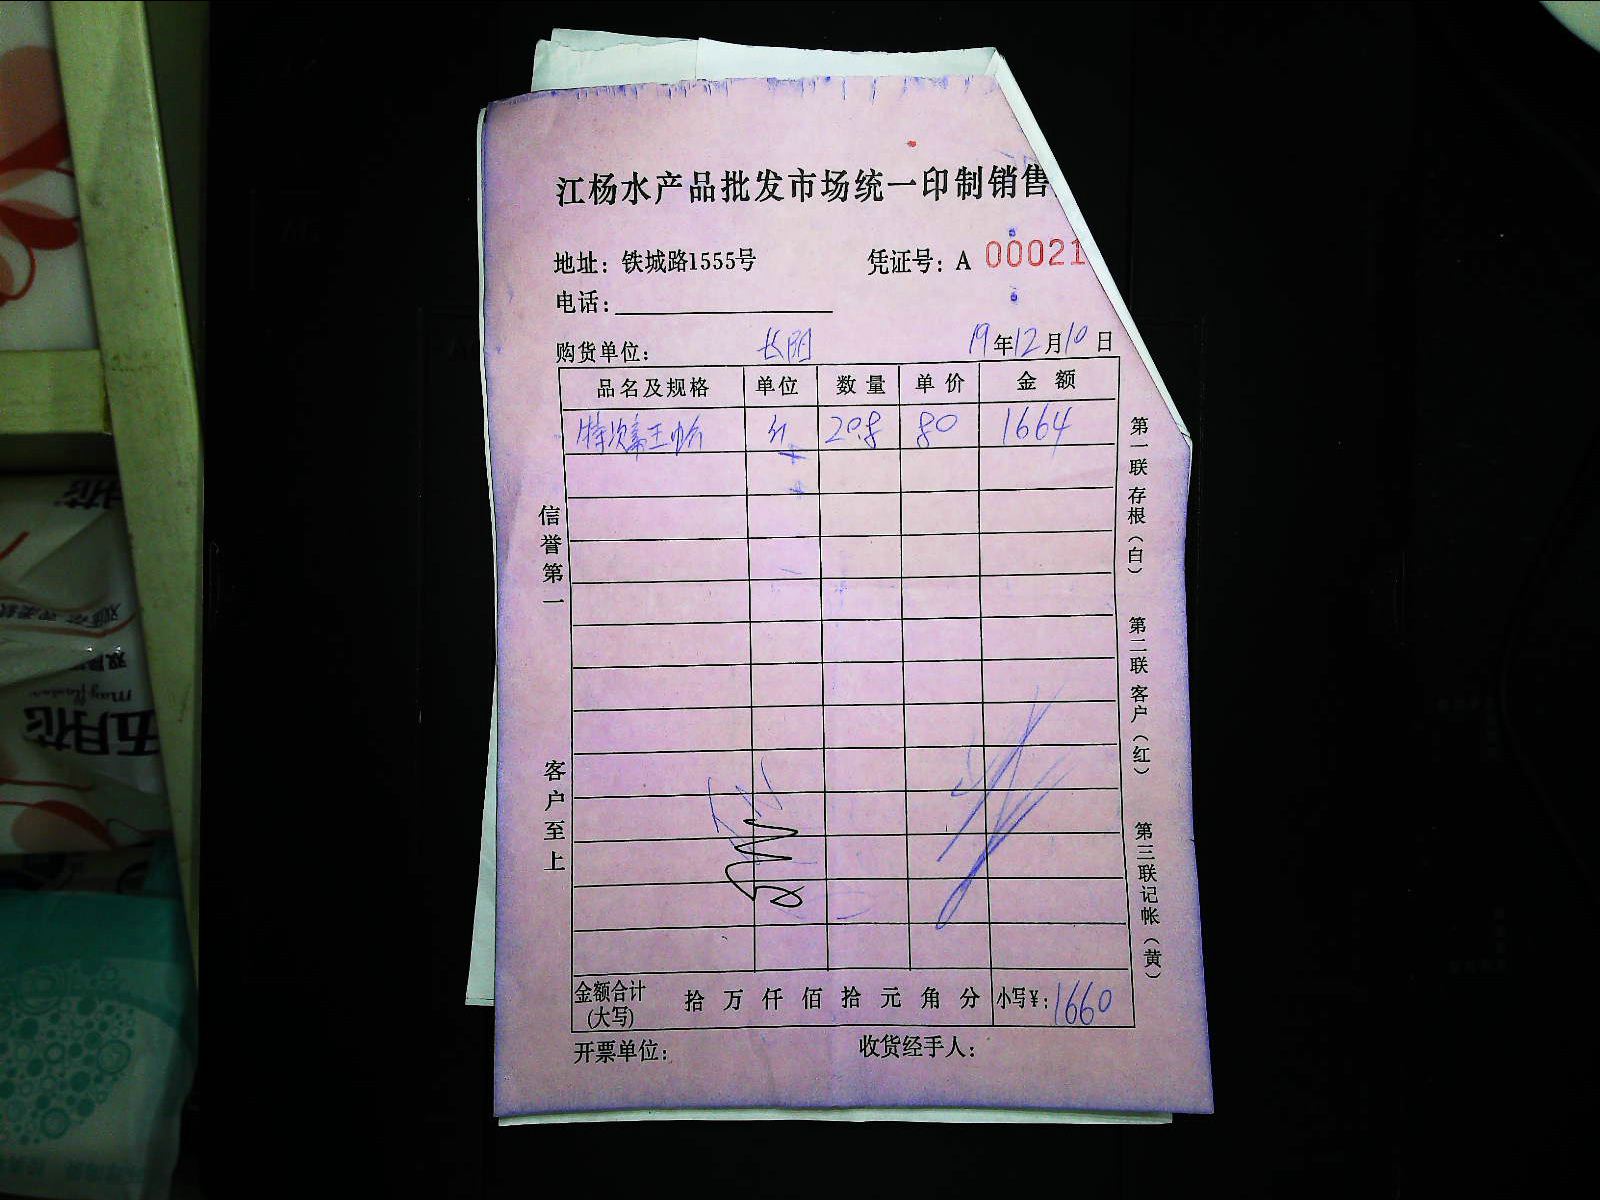 江杨水产品批发市场统一印制销售
地址：铁城路1555号
凭证号：A 00021
电话：
购货单位：长阳
19年12月10日
品名及规格 单位 数量 单价 金额
斤 20.8 80 1664
信誉第一
客户至上
第一联存根（白）
第二联客户（红）
第三联记帐（黄）
金额合计（大写） 拾 万 仟 佰 拾 元 角 分 小写¥：1660
开票单位：
收货经手人：
五月花
mayflower